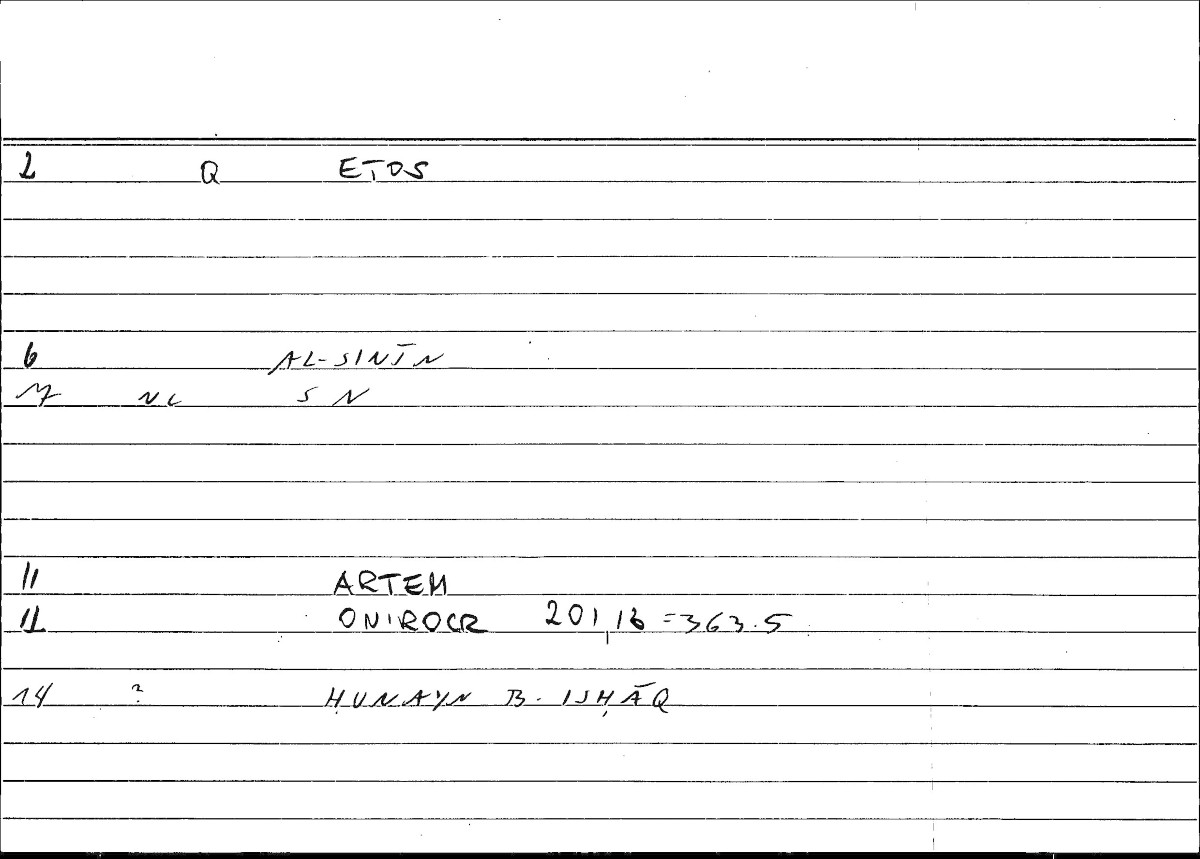 2 Q ETOS
6 AL-SINĪN
7 NC S N
11 ARTEM
12 ONIROCR 201,16 =363.5
14 ? ḤUNAYN B. ISḤĀQ